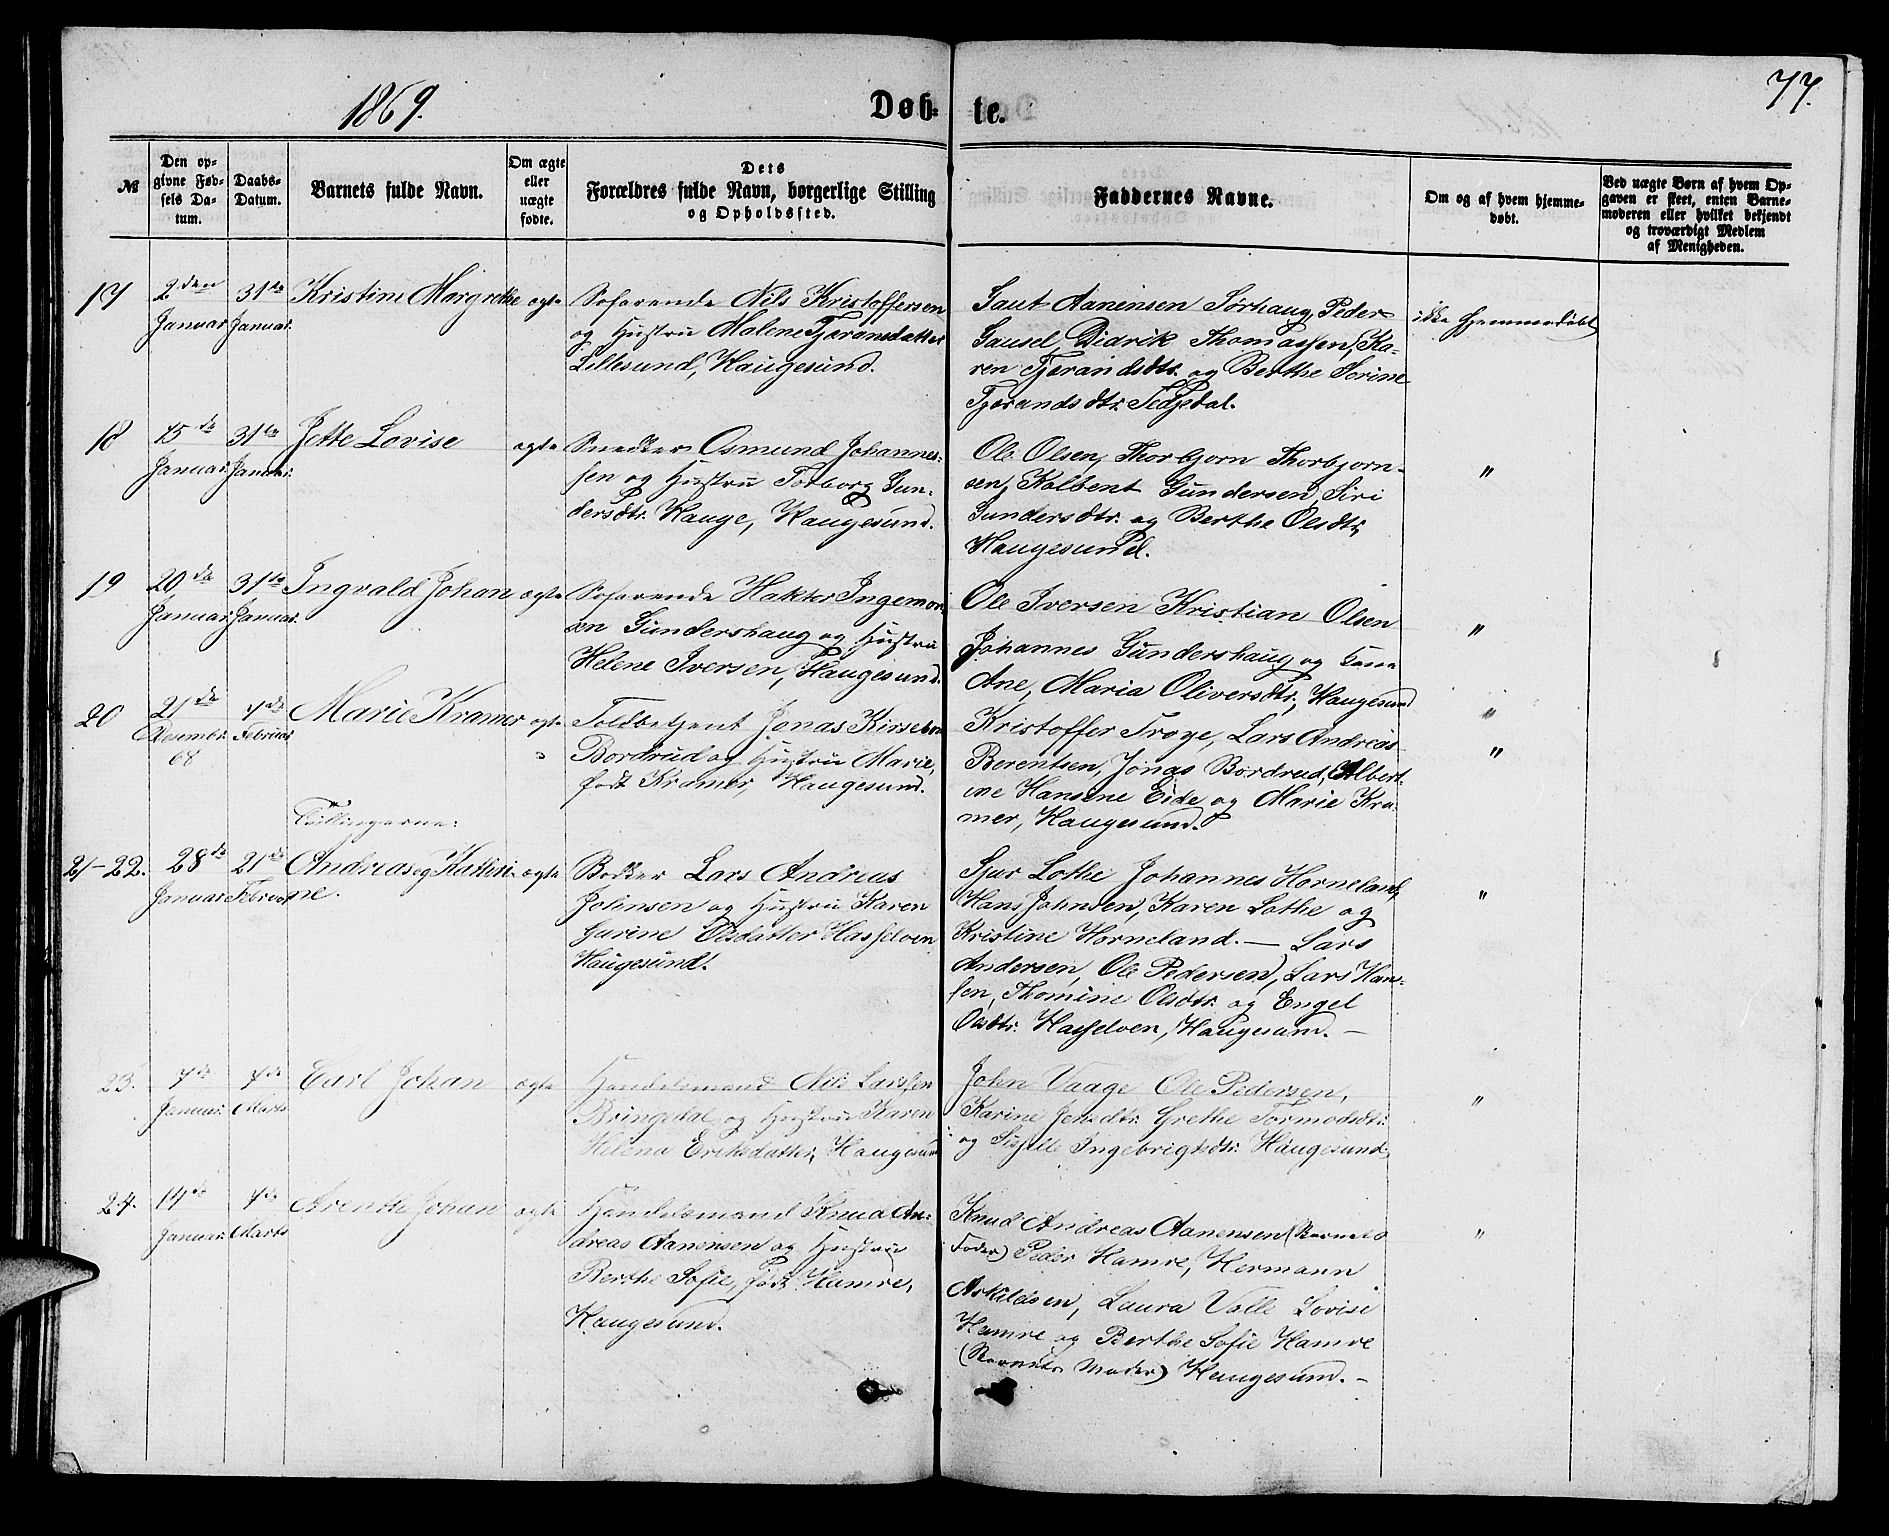 1869.
Døb-
te.
77.
№
Den op-
givne Fød-
sels Da-
tum.
Daabs-
Datum.
Barnets fulde Navn.
Om ægte
eller
uægte
fødte.
Dets
Forældres fulde Navn, borgerlige Stilling
og Opholdssted.
Faddernes Navne.
Om og af hvem hjemme-
døbt.
Ved uægte Børn af hvem Op-
gaven er skeet, enten Barne-
moderen eller hvilket bekjendt
og troværdigt Medlem
af Menigheden.
17
2den
Januar
31te
Januar.
Kristine Margrethe
ægte
Søfarende Nils Kristoffersen
og Hustru Malene Tjerandsdatter
Lillesund, Haugesund.
Gaut Aanensen Sørhaug, Peder
Gausel, Didrik Thomassen, Ka-
ren Tjerandsdtr. og Berthe Serine
Tjerandsdtr.
ikke hjemmedøbt
18
15de
Januar.
31te
Januar.
Jette Lovise
ægte
Snedker Osmund Johannes-
sen og Hustru Torborg Gun-
dersdtr. Hauge, Haugesund.
Ole Olsen, Thorbjørn Thorbjørn-
sen, Kolbent Gundersen, Siri
Gundersdtr. og Berthe Olsdtr,
Haugesund.
"
19
20de
Januar.
31te
Januar.
Ingvald Johan
ægte
Søfarende Ingemon
sen Gundershaug og Hustru
Helene Iversen, Haugesund.
Ole Iversen Kristian Olsen
Johannes Gundershaug og Kone
Ane, Maria Oliversdtr, Haugesund
"
20
21de
Decembr.
68
7de
Februar
Marie Kramer
ægte
Toldbetjent Jonas Kirsebom
Bordrud og Hustru Marie,
født Kramer, Haugesund.
Kristoffer Troye, Lars Andreas
Berentsen, Jonas Bordrud, Albert-
ine Hansene Eide og Marie Kra-
mer, Haugesund.
"
Tvillingerne:
21-22.
28de
Januar
21de
Februar
Andreas og Kathri-
ne.
ægte
Bødker Lars Andreas
Johnsen og Hustru Karen
Gurine Olsdatter Hasselven
Haugesund.
Sjur Lothe Johannes Horneland,
Hans Johnsen, Karen Lothe og
Kristine Horneland. — Lars
Andersen, Ole Pedersen, Lars Han-
sen, Thomine Olsdtr. og Engel
Olsdtr. Hasselven, Haugesund. —
"
23.
7de
Januar.
7de
Marts
Carl Johan
ægte
Handelsmand Nils Larssen
Bringedal og Hustru Karen
Helena Eriksdatter, Haugesund
John Vaage Ole Pedersen,
Karine Grethe Tormodsdtr:
og Ingebrigtsdtr. Haugesund
"
24.
14de
Januar.
7de
Marts
Arentte Johan
ægte
Handelsmand Knud An-
dreas Aanensen og Hustru
Berthe Sofie, født Hamre,
Haugesund.
Knud Andreas Aanensen (Barnets
Fader) Peder Hamre, Hermann
Askildsen, Laura Valle Lovise
Hamre og Berthe Sofie Hamre
(Barnets Moder) Haugesund. —
"